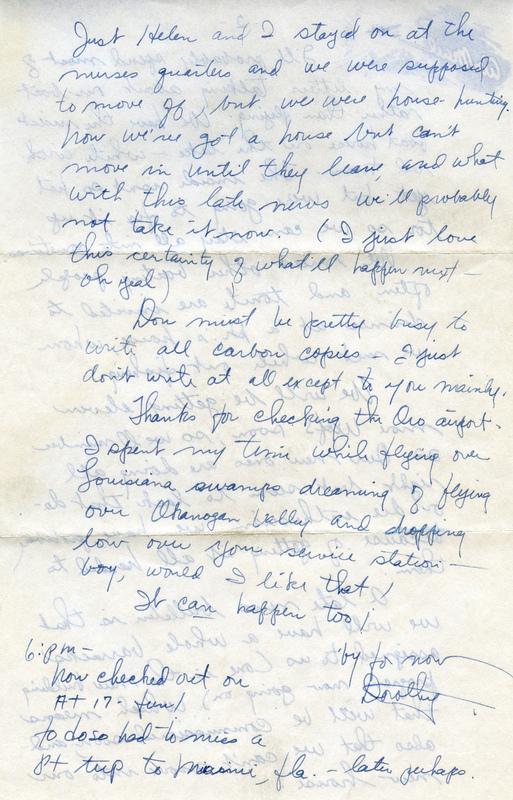 Just Helen and I stayed on at the
nurses quarters and we were supposed
to move off, but we were house-hunting.
now we've got a house but can't
move in until they leave, and what
with this late news we'll probably
not take it now. (I just love
this certainty of what'll happen next -
oh yeah)
Don must be pretty busy to
write all carbon copies - I just
don't write at all except to you mainly.
Thanks for checking the Oro airport.
I spent my time while flying over
Louisiana swamps dreaming of flying
over Okanogan Valley and dropping
low over your service station -
boy, would I like that!
It can happen too!
'by for now
Dorothy
6: P.M -
now checked out on
AT 17 - fun!
to do so had to miss a
PT trip to Miami, Fla. - later perhaps.